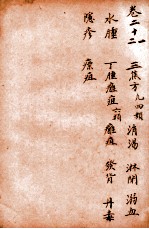 卷二十二
三焦方九四類 消渴 淋閉 溺血
水腫 丁腫癰疽六類 癰疽 發背 丹毒
隱疹 瘭疽